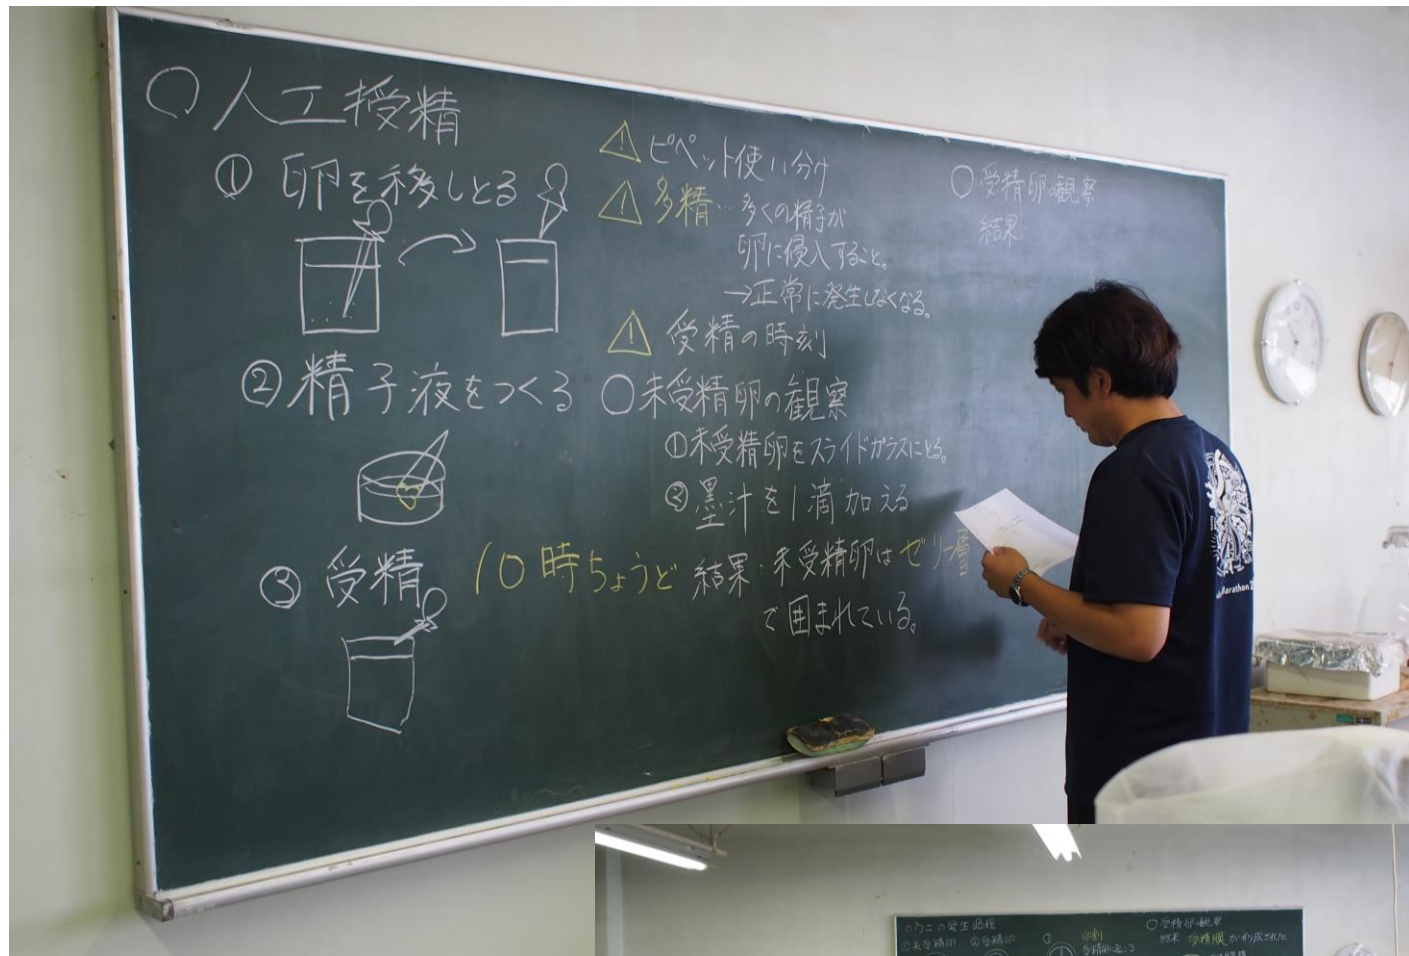 ○人工授精
① 卵を移しとる
② 精子液をつくる
③ 受精 10時ちょうど
⚠ ピペット使い分け
⚠ 多精…多くの精子が
卵に侵入すること。
→正常に発生しなくなる。
⚠ 受精の時刻
○未受精卵の観察
①未受精卵をスライドガラスにとる。
②墨汁を1滴加える
結果：未受精卵はゼリー層
で囲まれている。
○受精卵の観察
結果
Marathon
○ウニの発生過程
①未受精卵 ②受精卵 ③ 卵割
○受精卵の観察
結果 受精膜が形成された